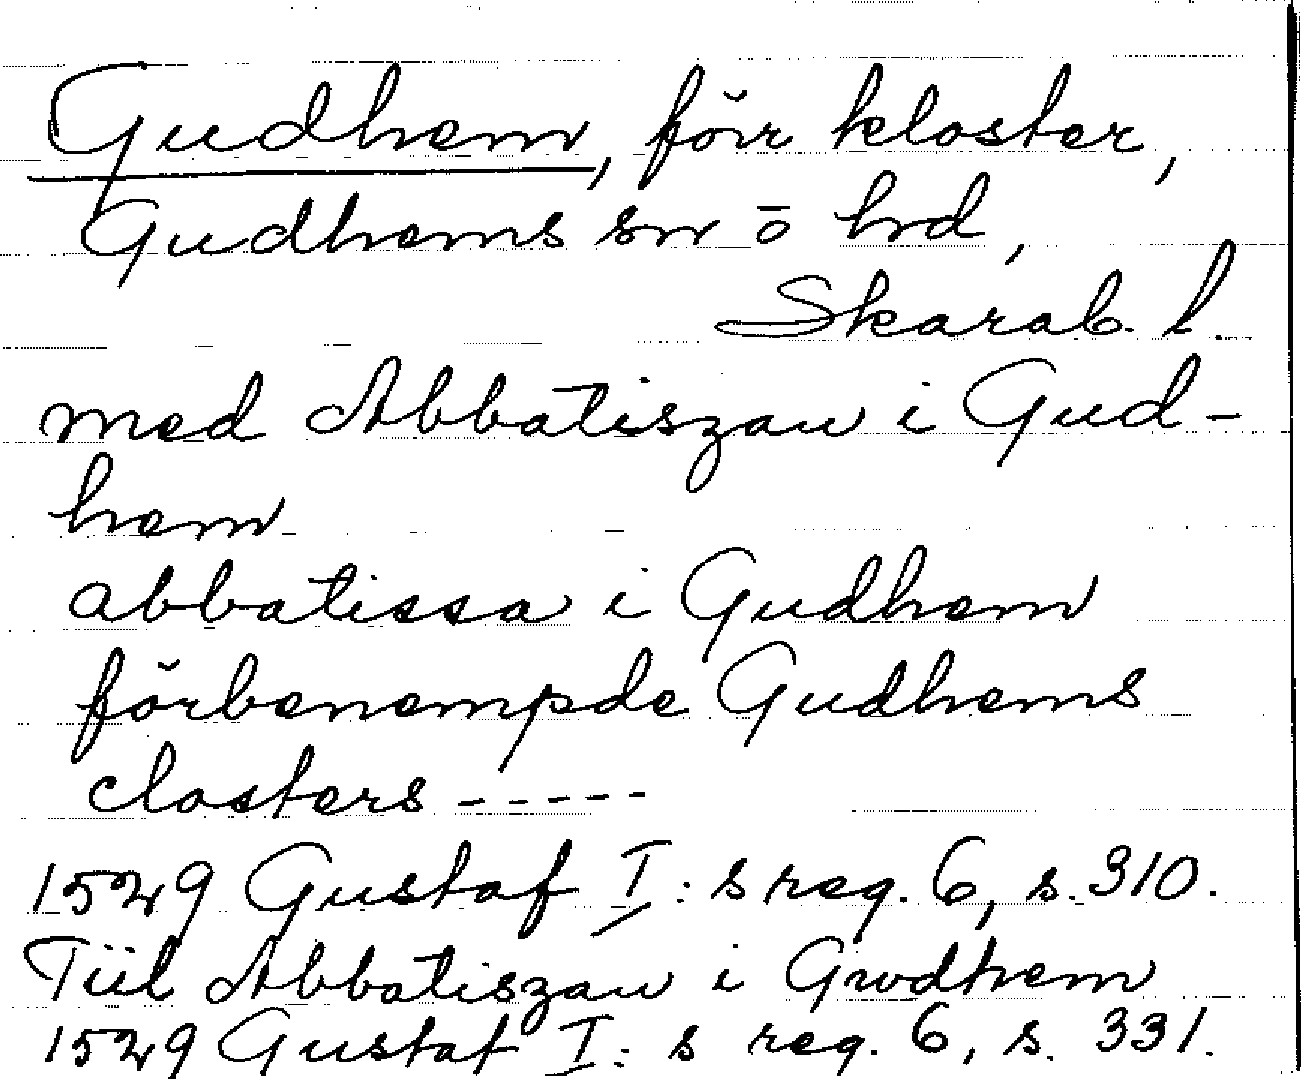 Gudhem, förr kloster,
Gudhems sn o hrd,
Skarab. l.
med Abbatiszau i Gud-
hem
abbatissa i Gudhem
förbenempde Gudhems
closters -----
1529 Gustaf I:s reg. 6, s. 310.
Tiil Abbatiszau i Gwdhem
1529 Gustaf I:s reg. 6, s. 331.